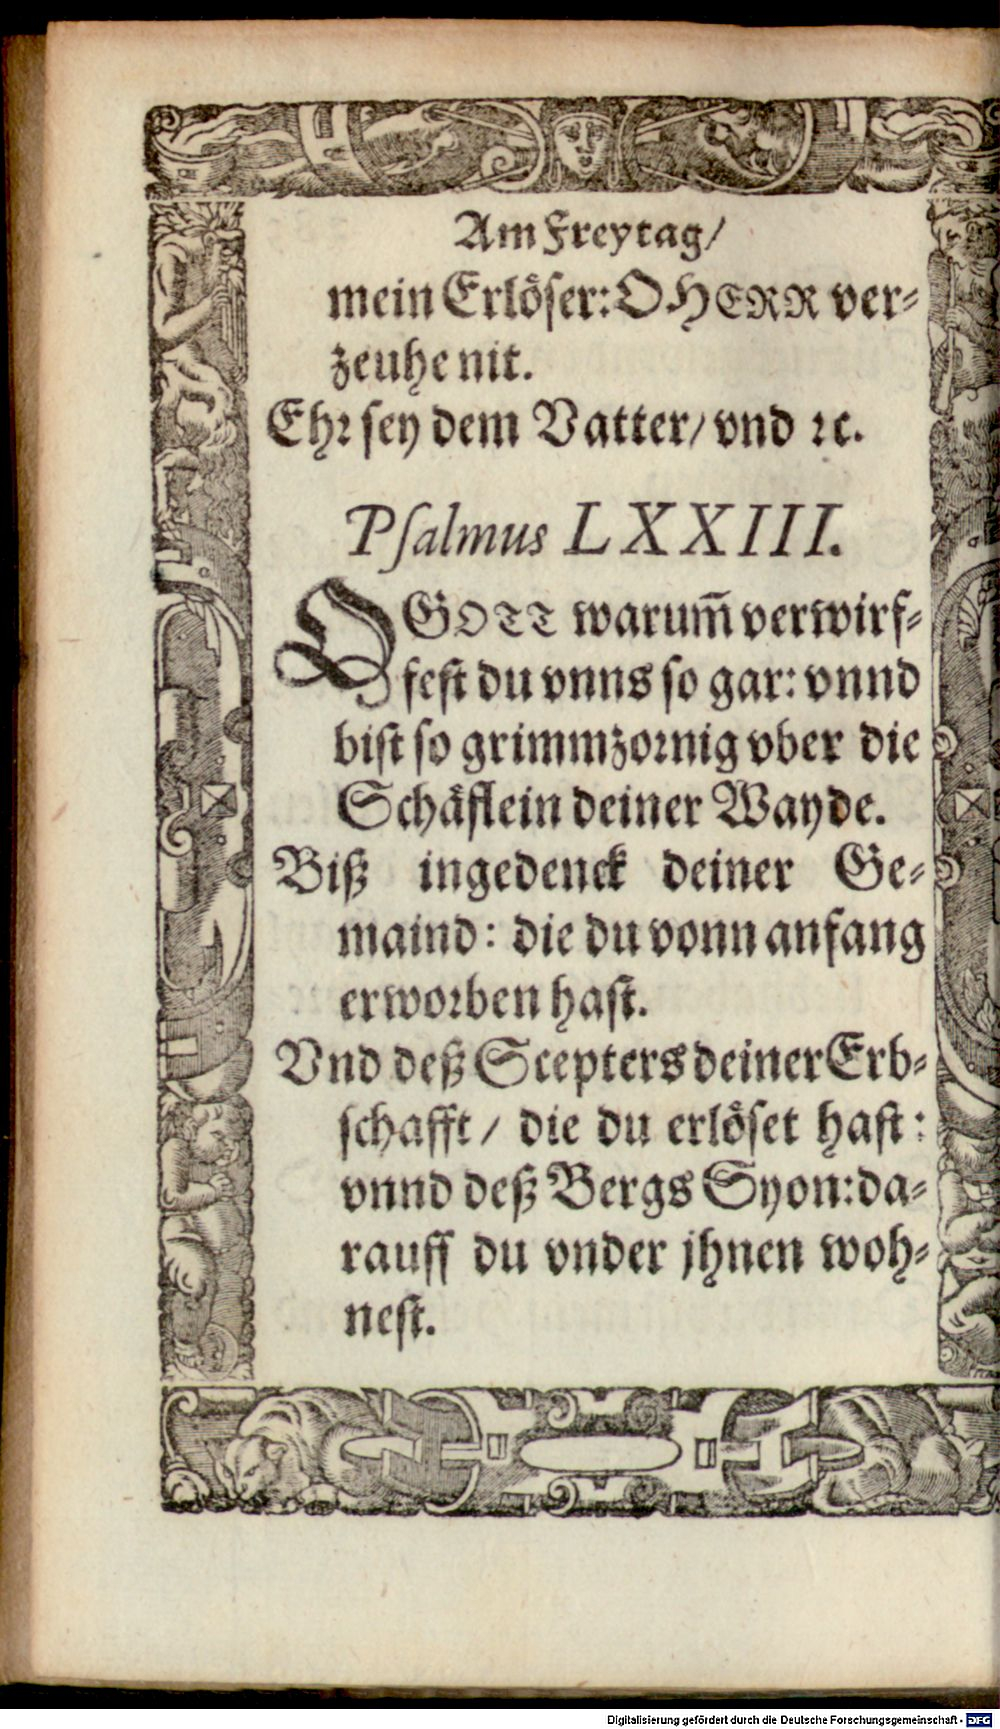 Am Freytag/
mein Erlöser: O HERR ver-
zeuhe nit.
Ehr sey dem Vatter/ vnd ꝛc.
Psalmus LXXIII.
O GOTT warum̃ verwirf-
fest du vnns so gar: vnnd
bist so grimmzornig vber die
Schäflein deiner Wayde.
Biß ingedenck deiner Ge-
maind: die du vonn anfang
erworben hast.
Vnd deß Scepters deiner Erb-
schafft / die du erlöset hast:
vnnd deß Bergs Syon: da-
rauff du vnder jhnen woh-
nest.
Digitalisierung gefördert durch die Deutsche Forschungsgemeinschaft - DFG